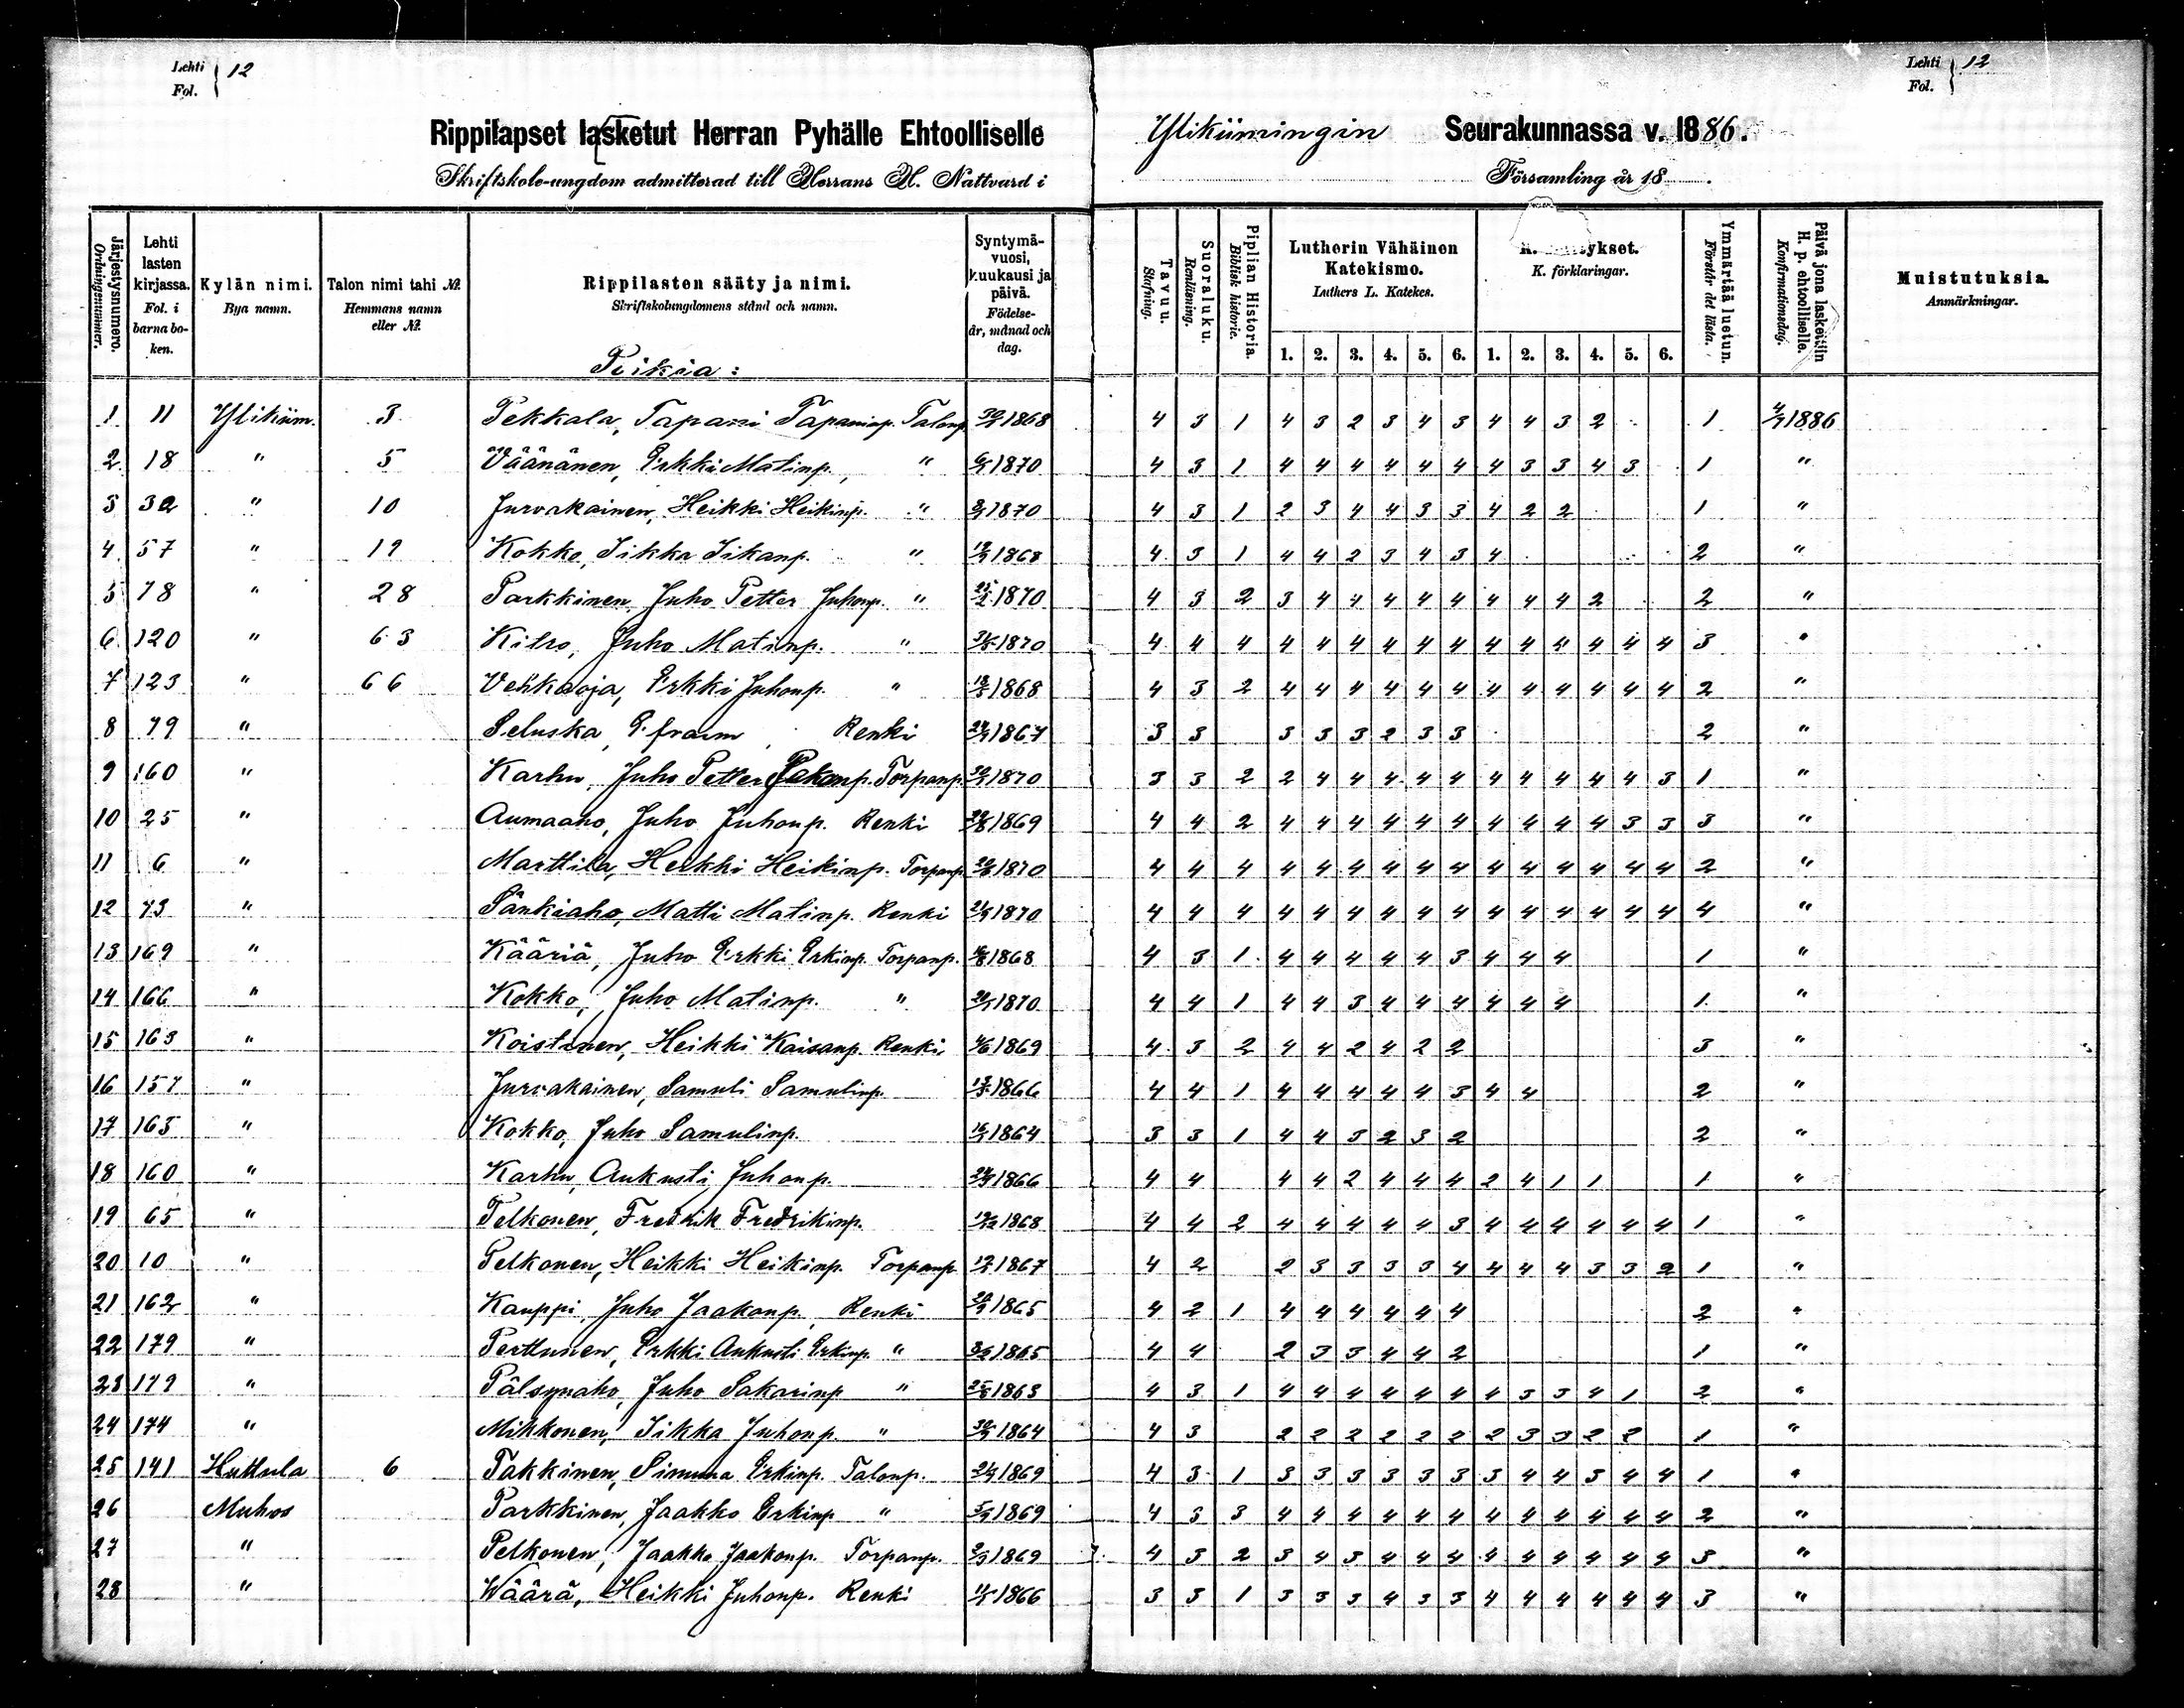 Lehti Fol. } 12
Rippilapset lasketut Herran Pyhälle Ehtoolliselle
Skriftskole-ungdom admitterad till Herrans H. Nattvard i
Järjestysnumero. Ordningsnummer.
Lehti lasten kirjassa. Fol. i barna boken.
Kylän nimi. Bya namn.
Talon nimi tahi №. Hemmans namn eller №.
Rippilasten sääty ja nimi. Skriftskolungdomens stånd och namn.
Syntymävuosi, kuukausi ja päivä. Födelse-år, månad och dag.
Poikia:
1 11 Ylikiim. 3 Pekkala, Tapani Tapaninp. Talonp. 1868
2 18 " 5 Väänänen, Erkki Matinp., " 1870
3 32 " 10 Jurvakainen, Heikki Heikinp. " 1870
4 57 " 19 Kokko, Iikka Iikanp. " 1868
5 78 " 28 Parkkinen Juho Petter Juhonp. " 1870
6 120 " 63 Kilro, Juho Matinp. " 1870
7 123 " 66 Vehkaoja, Erkki Juhonp. " 1868
8 79 " Seluska, Efraim, Renki 1867
9 160 " Karhu, Juho Petter Jakonp. Torpanp. 1870
10 25 " Aumaaho, Juho Juhonp. Renki 1869
11 6 " Marttila, Heikki Heikinp. Torpanp. 1870
12 73 " Sänkiaho, Matti Matinp. Renki 1870
13 169 " Kääriä, Juho Erkki Erkinp. Torpanp. 1868
14 166 " Kokko, Juho Matinp. " 1870
15 163 " Koistinen, Heikki Kaisanp. Renki 1869
16 157 " Jurvakainen, Samuli Samulinp. 1866
17 165 " Kokko, Juho Samulinp. 1864
18 160 " Karhu, Aukusti Juhonp. 1866
19 65 " Pelkonen, Fredrik Fredrikinp. 1868
20 10 " Pelkonen, Heikki Heikinp. Torpanp. 1867
21 162 " Kauppi, Juho Jaakonp., Renki 1865
22 179 " Perttunen, Erkki Aukusti Erkinp. " 1865
23 179 " Pälsynaho, Juho Sakarinp " 1863
24 174 " Mikkonen, Iikka Juhonp. " 1864
25 141 Huttula 6 Takkinen, Simuna Erkinp. Talonp. 1869
26 Muhos Parkkinen, Jaakko Erkinp " 1869
27 " Pelkonen, Jaakko Jaakonp. Torpanp. 1869
28 " Wäärä, Heikki Juhonp. Renki 1866
Lehti Fol. } 12
Ylikiimingin Seurakunnassa v. 1886.
Församling år 18 .
Tavuu. Stafning.
Suoraluku. Renläsning.
Piplian Historia. Biblisk historie.
Lutherin Vähäinen Katekismo. Luthers L. Katekes.
K. förklaringar.
Ymmärtää luetun. Förstår det lästa.
Päivä jona laskettiin H. p. ehtoolliselle. Konfirmationsdag.
Muistutuksia. Anmärkningar.
1. 2. 3. 4. 5. 6. 1. 2. 3. 4. 5. 6.
4 3 1 4 3 2 3 4 3 4 4 3 2 1 4/7 1886
4 3 1 4 4 4 4 4 4 4 3 3 4 3 1 "
4 3 1 2 3 4 4 3 3 4 2 2 1 "
4 3 1 4 4 2 3 4 3 4 2 "
4 3 2 3 4 4 4 4 4 4 4 4 2 2 "
4 4 4 4 4 4 4 4 4 4 4 4 4 4 4 3 "
4 3 2 4 4 4 4 4 4 4 4 4 4 4 4 2 "
3 3 3 3 3 2 3 3 2 "
3 3 2 2 4 4 4 4 4 4 4 4 4 4 3 1 "
4 4 2 4 4 4 4 4 4 4 4 4 4 3 3 3 "
4 4 4 4 4 4 4 4 4 4 4 4 4 4 4 2 "
4 4 4 4 4 4 4 4 4 4 4 4 4 4 4 4 "
4 3 1 4 4 4 4 4 3 4 4 4 1 "
4 4 1 4 4 3 4 4 4 4 4 4 1 "
4 3 2 4 4 2 4 2 2 3 "
4 4 1 4 4 4 4 4 3 4 4 2 "
3 3 1 4 4 3 2 3 2 2 "
4 4 4 4 2 4 4 4 2 4 1 1 1 "
4 4 2 4 4 4 4 4 3 4 4 4 4 4 4 1 "
4 2 2 3 3 3 3 4 4 4 4 3 3 2 1 "
4 2 1 4 4 4 4 4 4 2 "
4 4 2 3 3 4 4 2 1 "
4 3 1 4 4 4 4 4 4 4 3 3 4 1 2 "
4 3 2 2 2 2 2 2 2 3 3 2 2 1 "
4 3 1 3 3 3 3 3 3 3 4 4 3 4 4 1 "
4 3 3 4 4 4 4 4 4 4 4 4 4 4 4 2 "
4 3 2 3 4 3 4 4 4 4 4 4 4 4 4 3 "
3 3 1 3 3 3 4 3 3 4 4 4 4 4 4 3 "